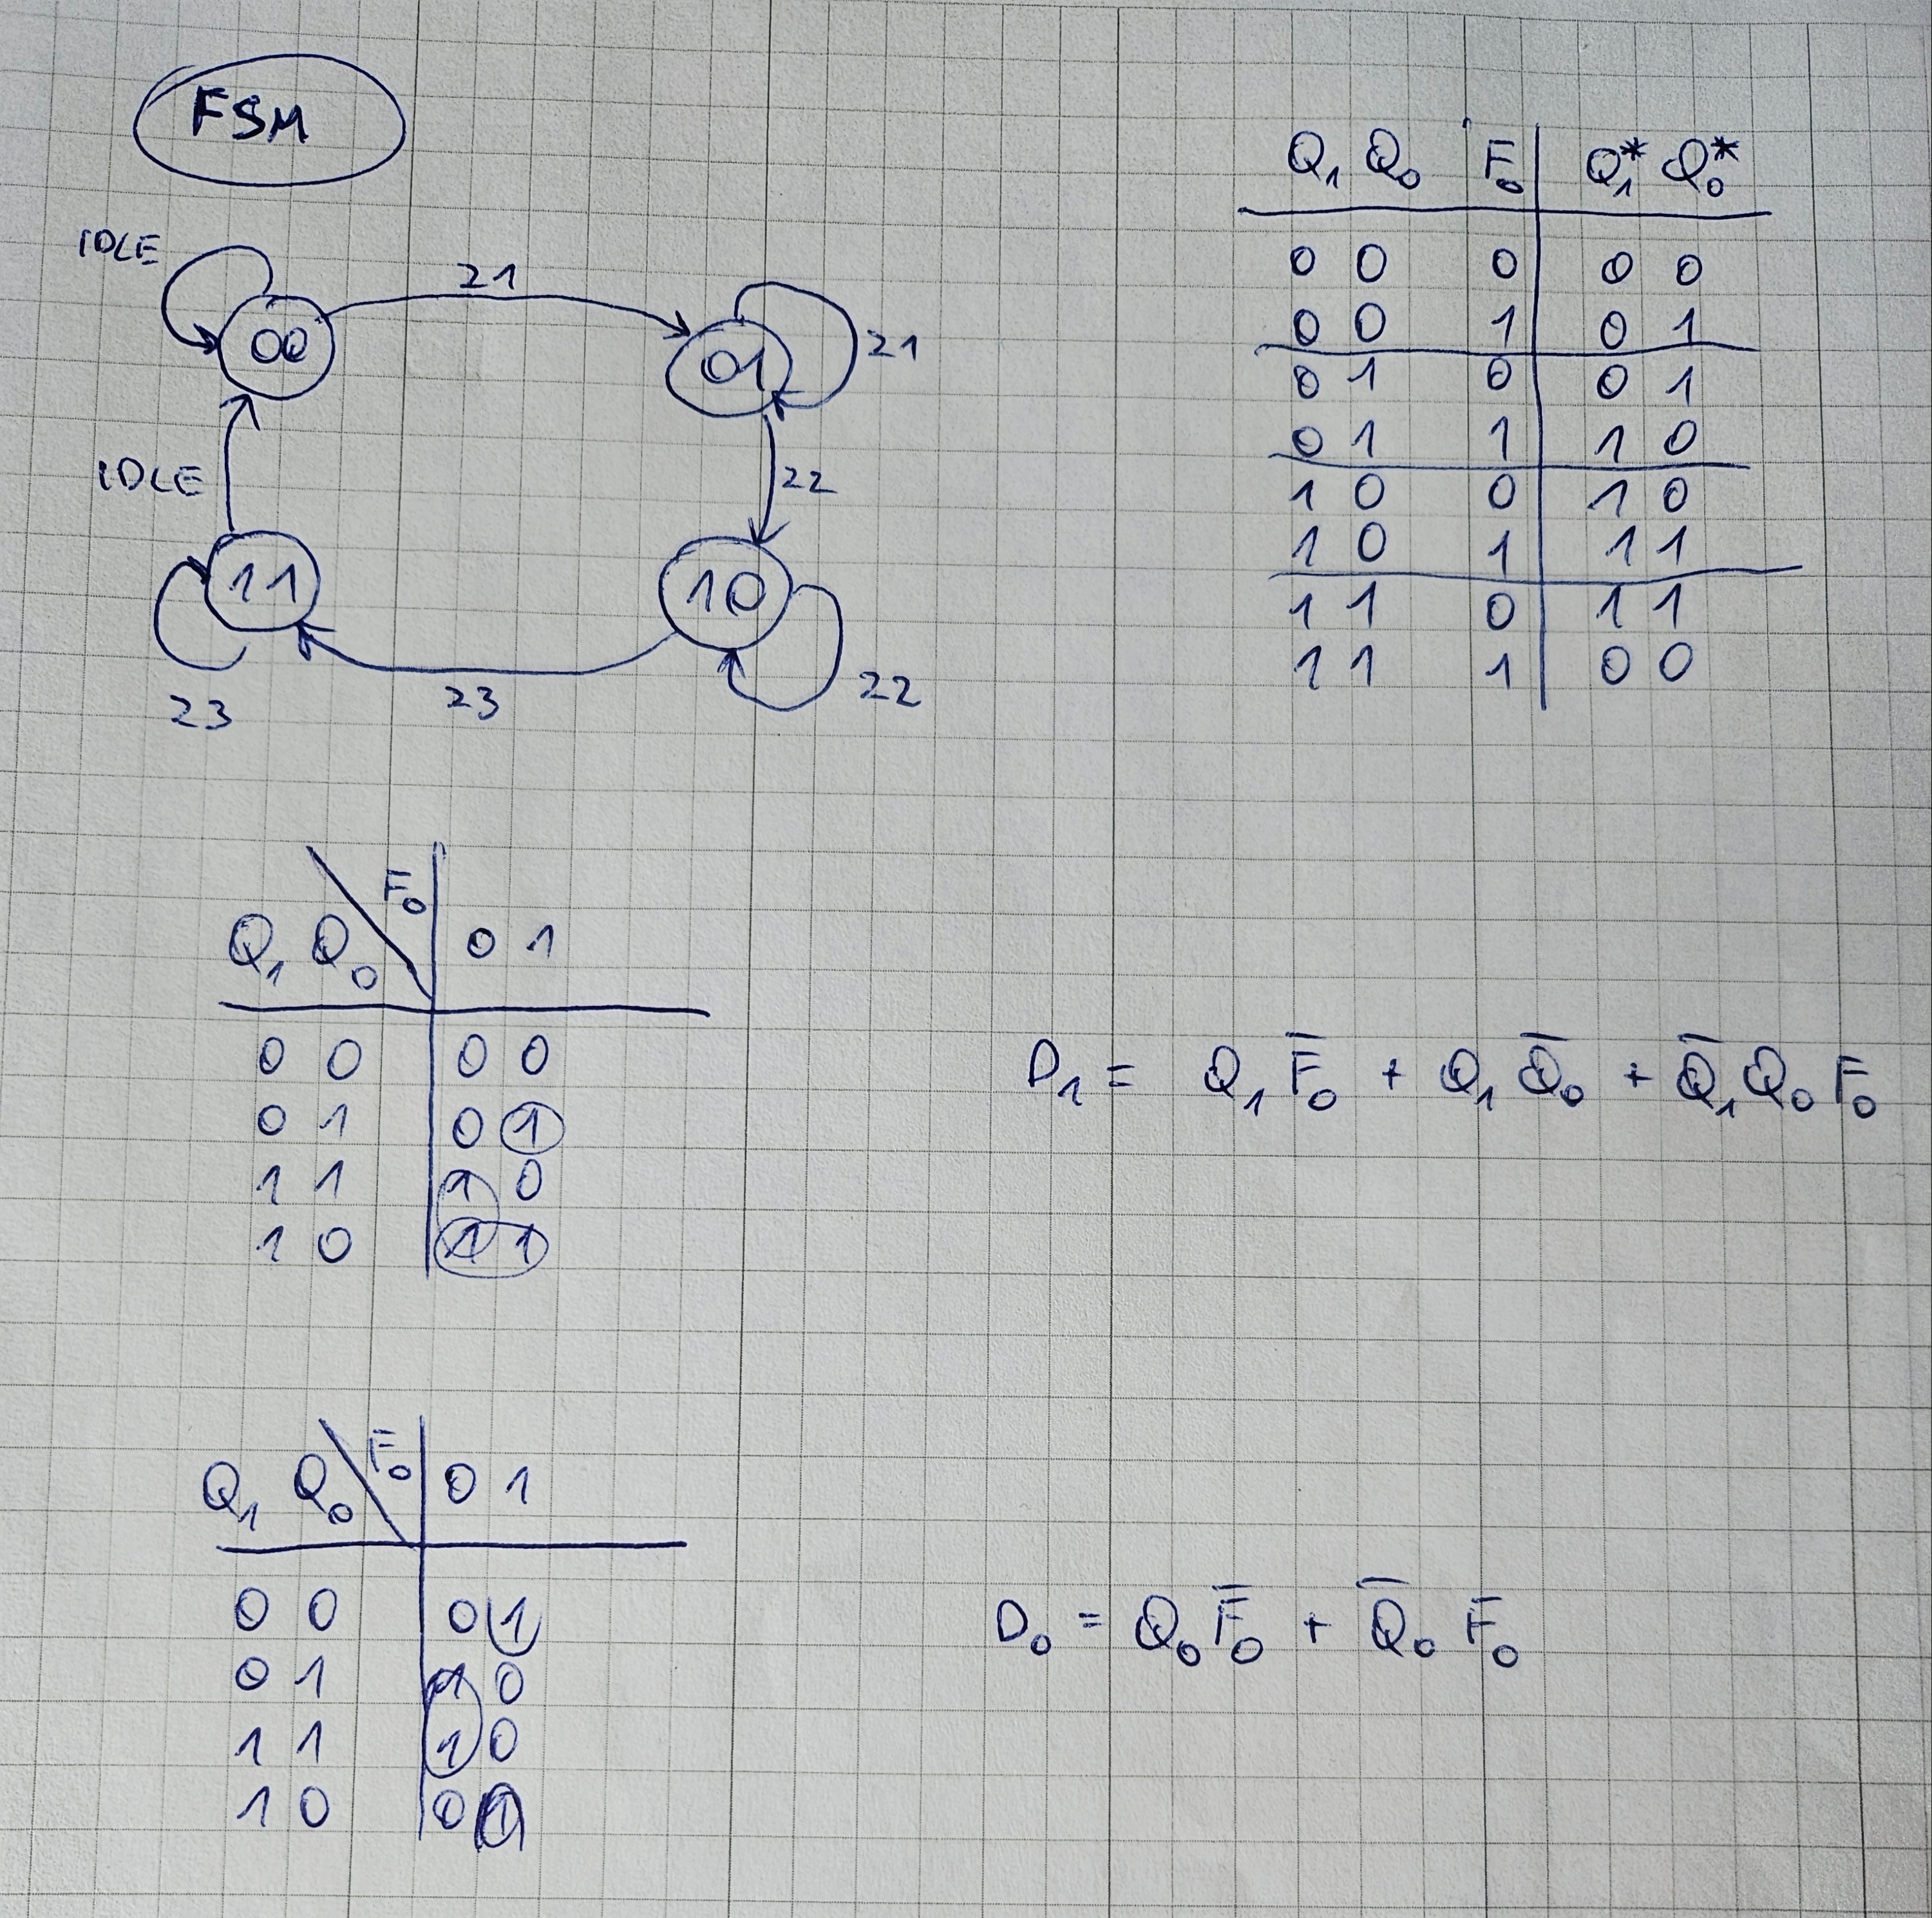 FSM
IDLE
21
00
01
21
IDLE
22
11
10
23
23
22
Q₁ Q₀ F₀ Q₁* Q₀*
0 0 0 0 0
0 0 1 0 1
0 1 0 0 1
0 1 1 1 0
1 0 0 1 0
1 0 1 1 1
1 1 0 1 1
1 1 1 0 0
F₀
Q₁ Q₀ 0 1
0 0 0 0
0 1 0 1
1 1 1 0
1 0 1 1
D₁ = Q₁ F̅₀ + Q₁ Q̅₀ + Q̅₁ Q₀ F₀
F₀
Q₁ Q₀ 0 1
0 0 0 1
0 1 1 0
1 1 1 0
1 0 0 1
D₀ = Q₀ F̅₀ + Q̅₀ F₀